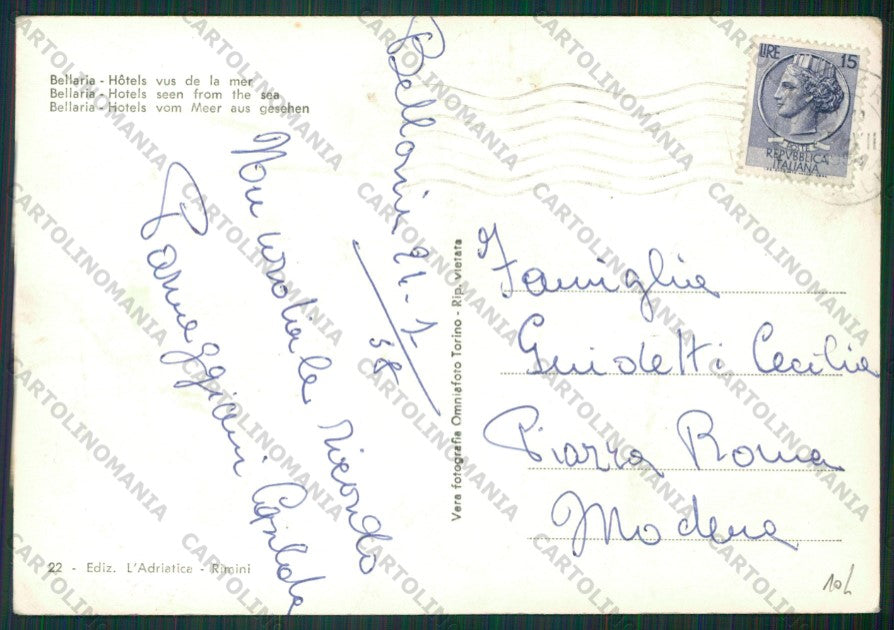 Bellaria - Hôtels vus de la mer
Bellaria - Hotels seen from the sea
Bellaria - Hotels vom Meer aus gesehen
LIRE 15
POSTE
REPVBBLICA
ITALIANA
Bellaria 21-7-
58
ricordo
Parmeggiani Casilda
Vera fotografia Omniafoto Torino - Rip. vietata
Famiglia
Guidetti Cecilia
Piazza Roma
Modena
22 - Ediz. L'Adriatica - Rimini
CARTOLINOMANIA